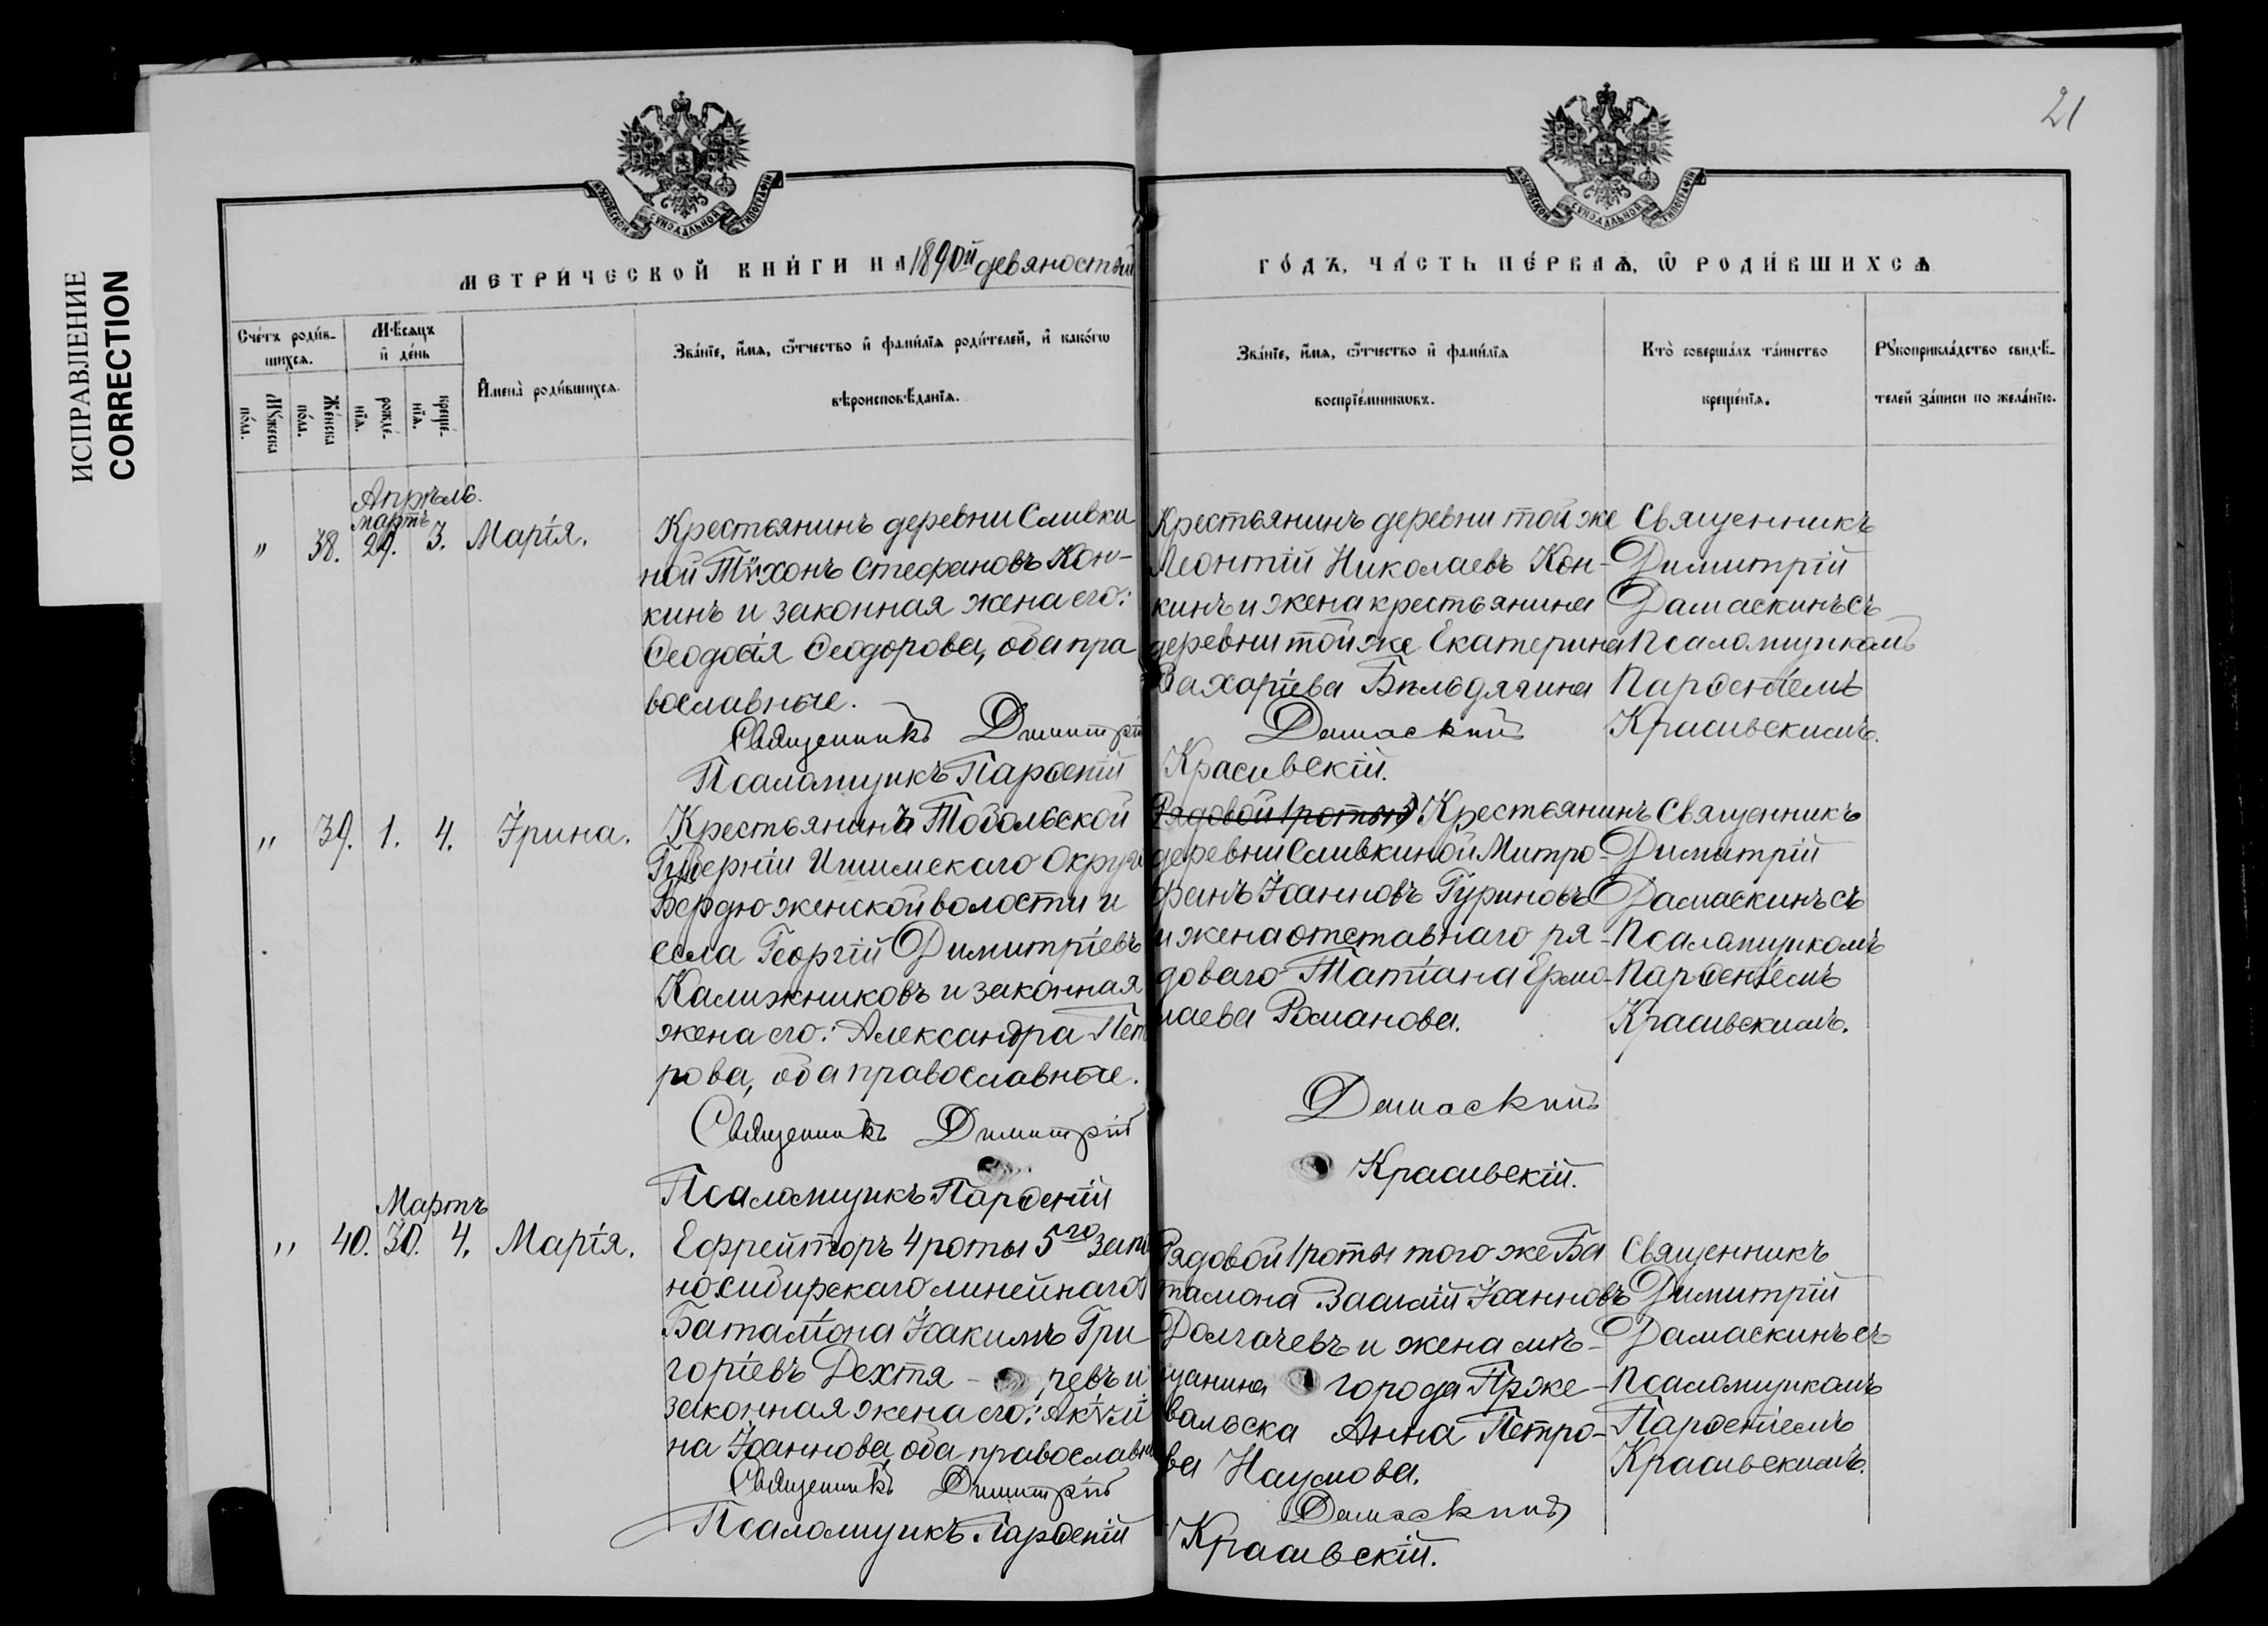 ИСПРАВЛЕНИЕ
CORRECTION
21
МОСКОВСКОЙ СѴНОДАЛЬНОЙ ТИПОГРАФІИ
МОСКОВСКОЙ СѴНОДАЛЬНОЙ ТИПОГРАФІИ
МЕТРИ́ЧЕСКОЙ КНИ́ГИ НА 1890й девяностый
ГО́ДЪ, ЧА́СТЬ ПЕ́РВАѦ, Ѡ РОДИ́ВШИХСѦ
Сче́тъ роди́в-
шихсѧ.
Мꙋ́жеска
по́ла.
Же́нска
по́ла.
Мѣ́сѧцъ
и҆ де́нь
рожде́-
нїѧ.
креще́-
нїѧ.
И҆мена̀ роди́вшихсѧ.
Зва́нїе, и҆́мѧ, ѻ҆́тчество и҆ фами́лїѧ роди́телей, и҆ како́гѡ
вѣроисповѣ́данїѧ.
Зва́нїе, и҆́мѧ, ѻ҆́тчество и҆ фами́лїѧ
воспрїе́мникѡвъ.
Кто̀ соверша́лъ та́инство
креще́нїѧ.
Рꙋкоприкла́дство свидѣ́-
телей за́писи по жела́нїю.
Апрѣль.
мартъ
" 38. 29. 3. Марія.
Крестьянинъ деревни Сливки
ной Тѵхонъ Стефановъ Кон-
кинъ и законная жена его:
Ѳеодосія Ѳеодорова, оба пра
вославные.
Священникъ Димитрій
Псаломщикъ Парѳеній
Крестьянинъ деревни той же
Леонтій Николаевъ Кон-
кинъ и жена крестьянина
деревни той же Екатерина
Захаріева Бѣльдягина
Дамаскинъ
Красивскій.
Священникъ
Димитрій
Дамаскинъ съ
Псаломщикомъ
Парѳеніемъ
Красивскимъ.
" 39. 1. 4. Ірина.
Крестьянинъ Тобольской
Губерніи Ишимскаго Округа
Бердюженской волости и
села Георгій Димитріевъ
Калижниковъ и законная
жена его: Александра Пет
рова, оба православные.
Священникъ Димитрій
Псаломщикъ Парѳеній
Рядовой 1 роты Крестьянинъ
деревни Сливкиной Митро-
фанъ Іоанновъ Гуриновъ
и жена отставнаго ря-
доваго Татіана Ермо-
лаева Романова.
Дамаскинъ
Красивскій.
Священникъ
Димитрій
Дамаскинъ съ
Псаломщикомъ
Парѳеніемъ
Красивскимъ.
Мартъ
" 40. 30. 4. Марія.
Ефрейторъ 4 роты 5го запад
но Сибирскаго линейнаго
Баталіона Іоакимъ Гри
горіевъ Дехтя - ревъ и
законная жена его: Акѵли
на Іоаннова, оба православны
Священникъ Димитрій
Псаломщикъ Парѳеній
Рядовой 1 роты того же Ба
таліона Василій Іоанновъ
Долгачевъ и жена мѣ-
щанина города Прже-
вальска Анна Петро-
ва Наумова.
Дамаскинъ
Красивскій.
Священникъ
Димитрій
Дамаскинъ съ
Псаломщикомъ
Парѳеніемъ
Красивскимъ.